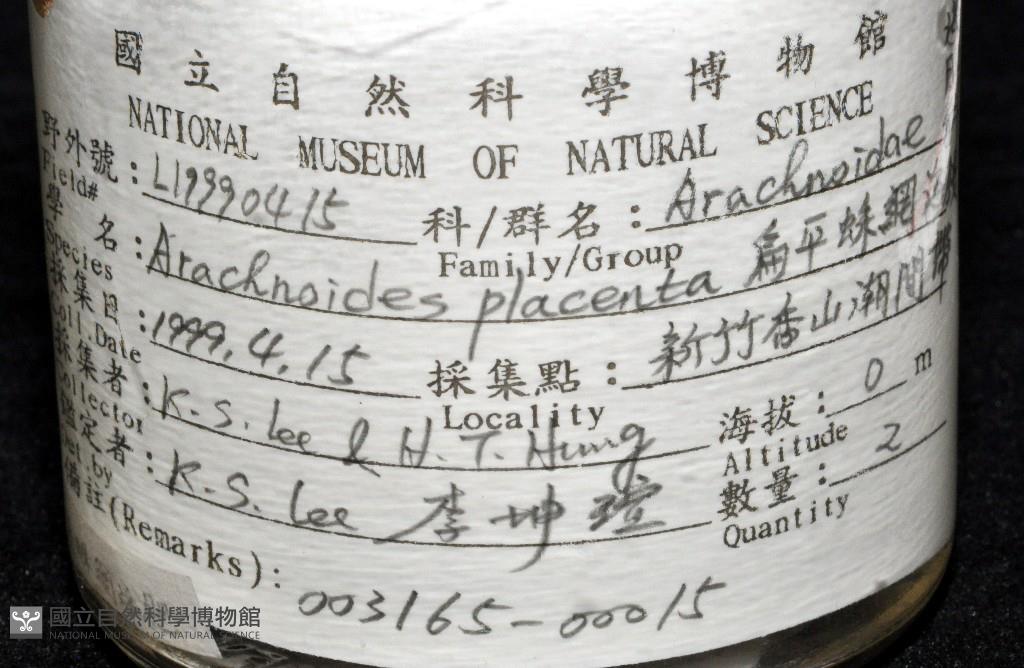 國立自然科學博物館
NATIONAL MUSEUM OF NATURAL SCIENCE
野外號：L19990415 科/群名：Arachnoidae
Field# Family/Group
學名：Arachnoides placenta 扁平蛛網海
Species
採集日：1999.4.15 採集點：新竹香山潮間帶
Coll.Date Locality
採集者：K.S. Lee & H.T. Hung 海拔：0 m
Collector Altitude
鑑定者：K.S. Lee 李坤瑄 數量：2
Det by Quantity
備註(Remarks):
003165-00015
國立自然科學博物館
NATIONAL MUSEUM OF NATURAL SCIENCE